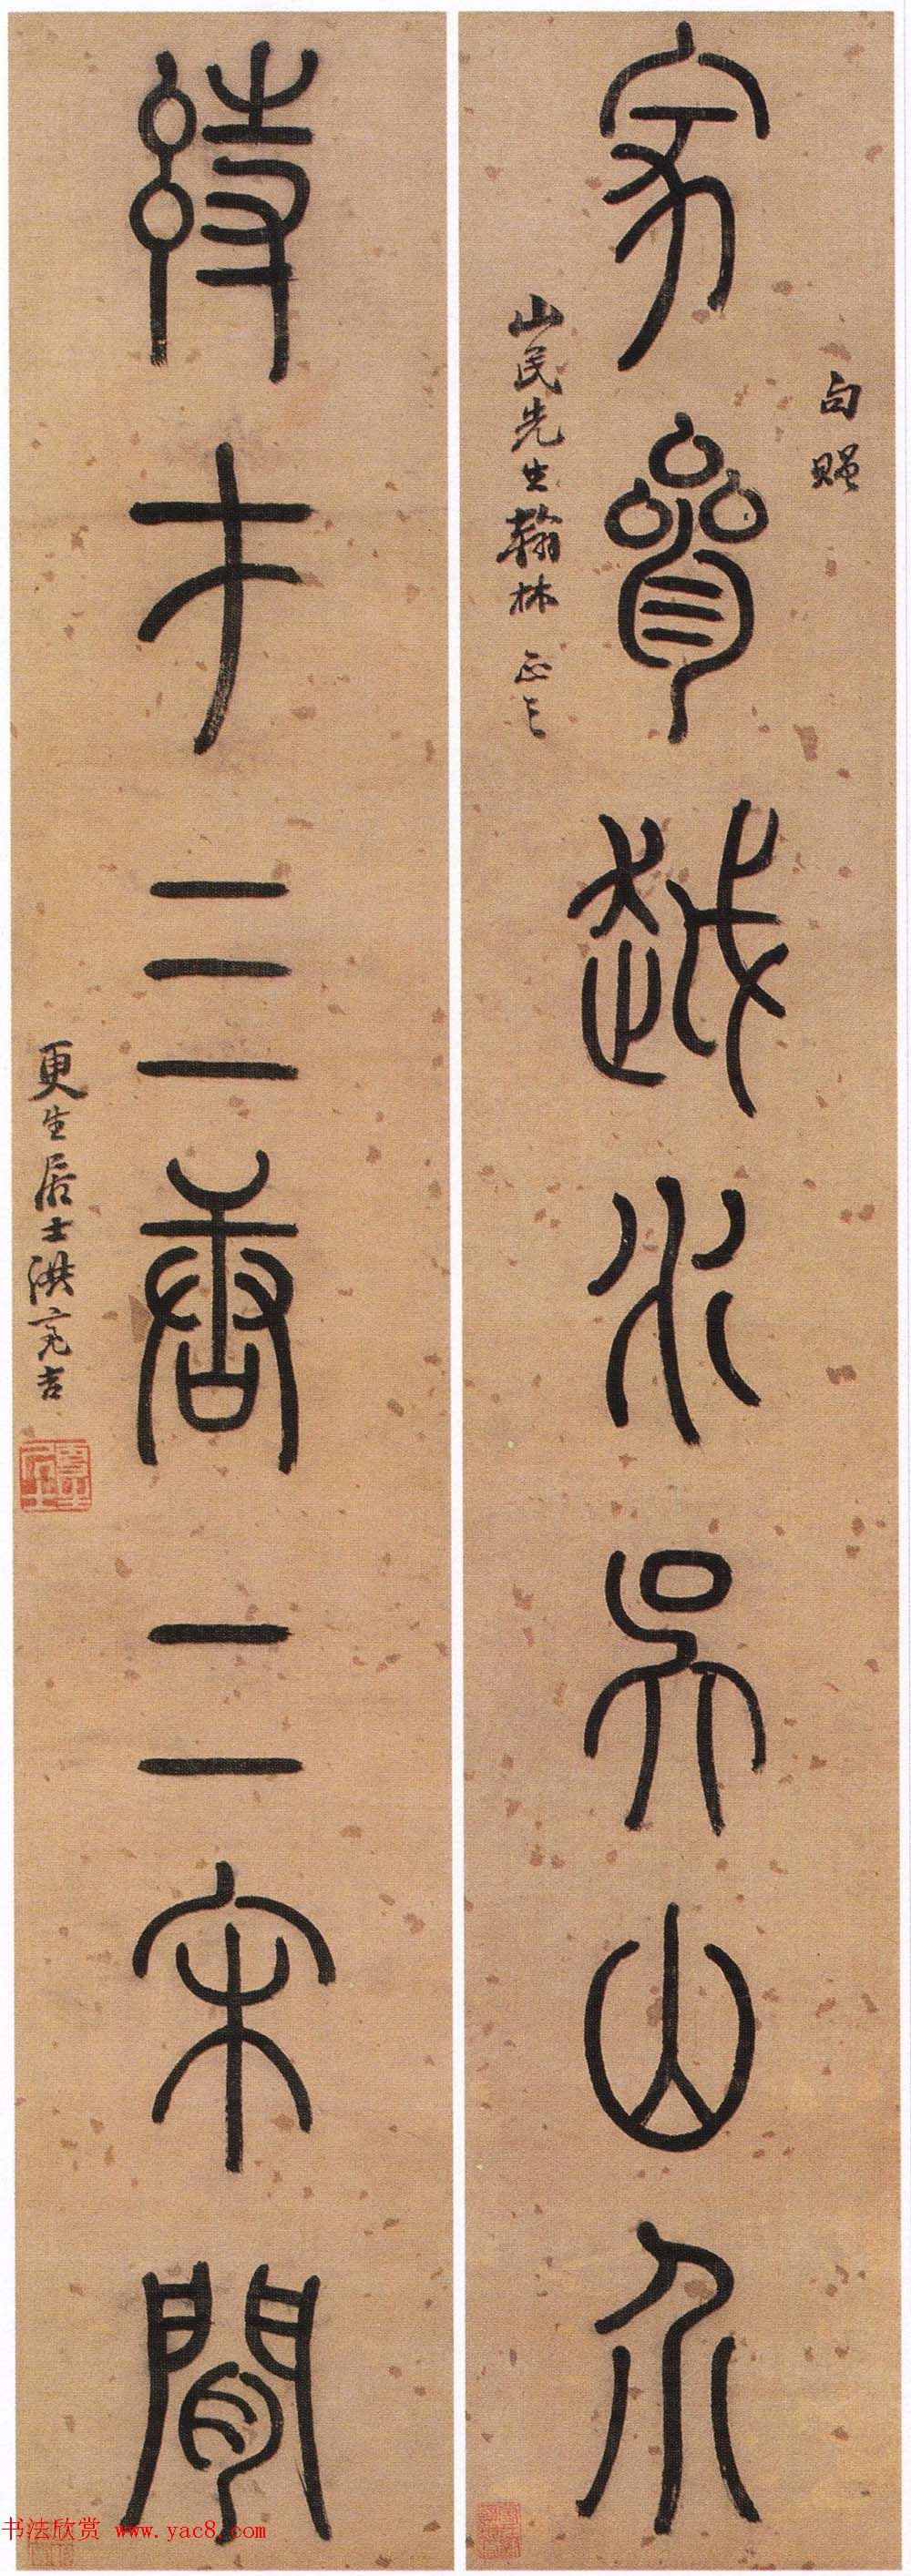 句贈
家參越水吳山介
山民先生翰林正之
詩才三唐二宋間
更生居士洪亮吉
更生居士
书法欣赏 www.yac8.com